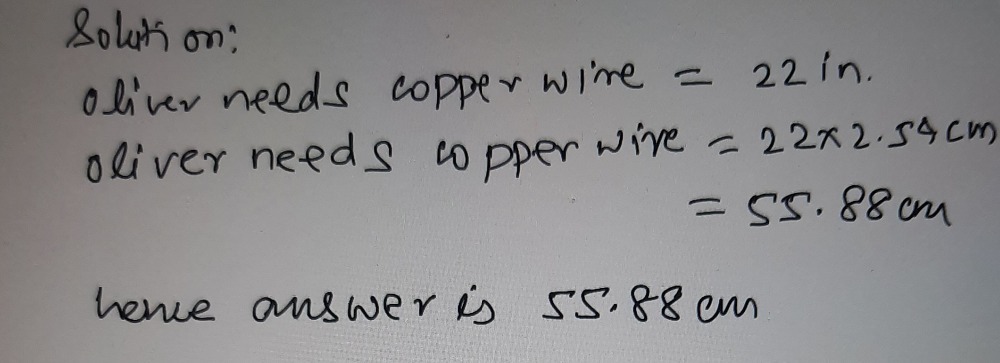 Solution:
oliver needs copper wire = 22 in.
oliver needs copper wire = 22x2.54 cm
= 55.88 cm
hence answer is 55.88 cm